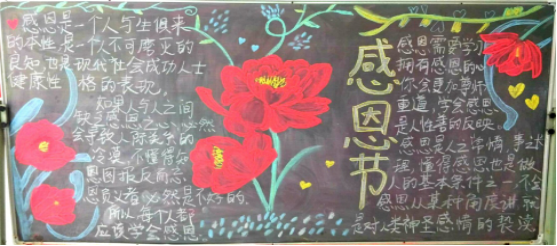 感恩是一个人与生俱来
的本性，是一个人不可磨灭的
良知，也是现代社会成功人士
健康性格的表现，
如果人与人之间
缺乏感恩之心，必然
会导致人际关系的
冷漠，不懂得知
恩图报反而忘
恩负义者必然是不好的，
所以每个人都
应该学会感恩
感恩节
感恩需要学习
拥有感恩的心
你会更加尊师
重道，学会感恩
是人性善的反映。
感恩是人之常情，事之
理，懂得感恩也是做
人的基本条件之一，不会
感恩从某种角度讲就
是对人类神圣感情的亵渎